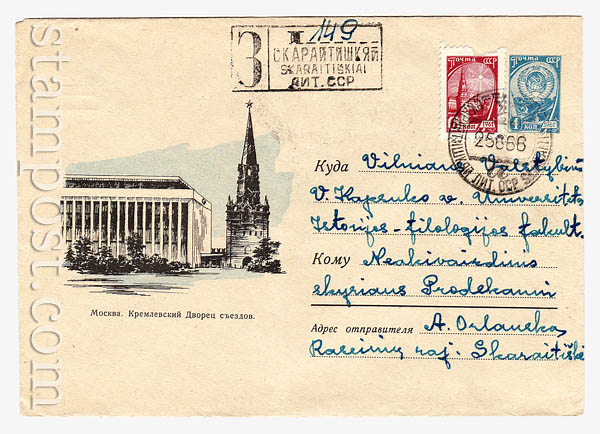 149
З
СКАРАЙТИШКЯЙ
SKARAITIŠKIAI
ЛИТ. ССР
ПОЧТА СССР
6 КОП
ПОЧТА СССР
4 КОП
25 8 66
ЛИТ. ССР
Куда Vilniaus Valstybin
V Kapsuko v. Universiteto
Istorijos-filologijos fakult.
Кому Neakivaizdinio
skyriaus Prodekanui
Адрес отправителя A. Orlauska
Raseinių raj. Skaraitiškė
Москва. Кремлевский Дворец съездов.
stampost.com